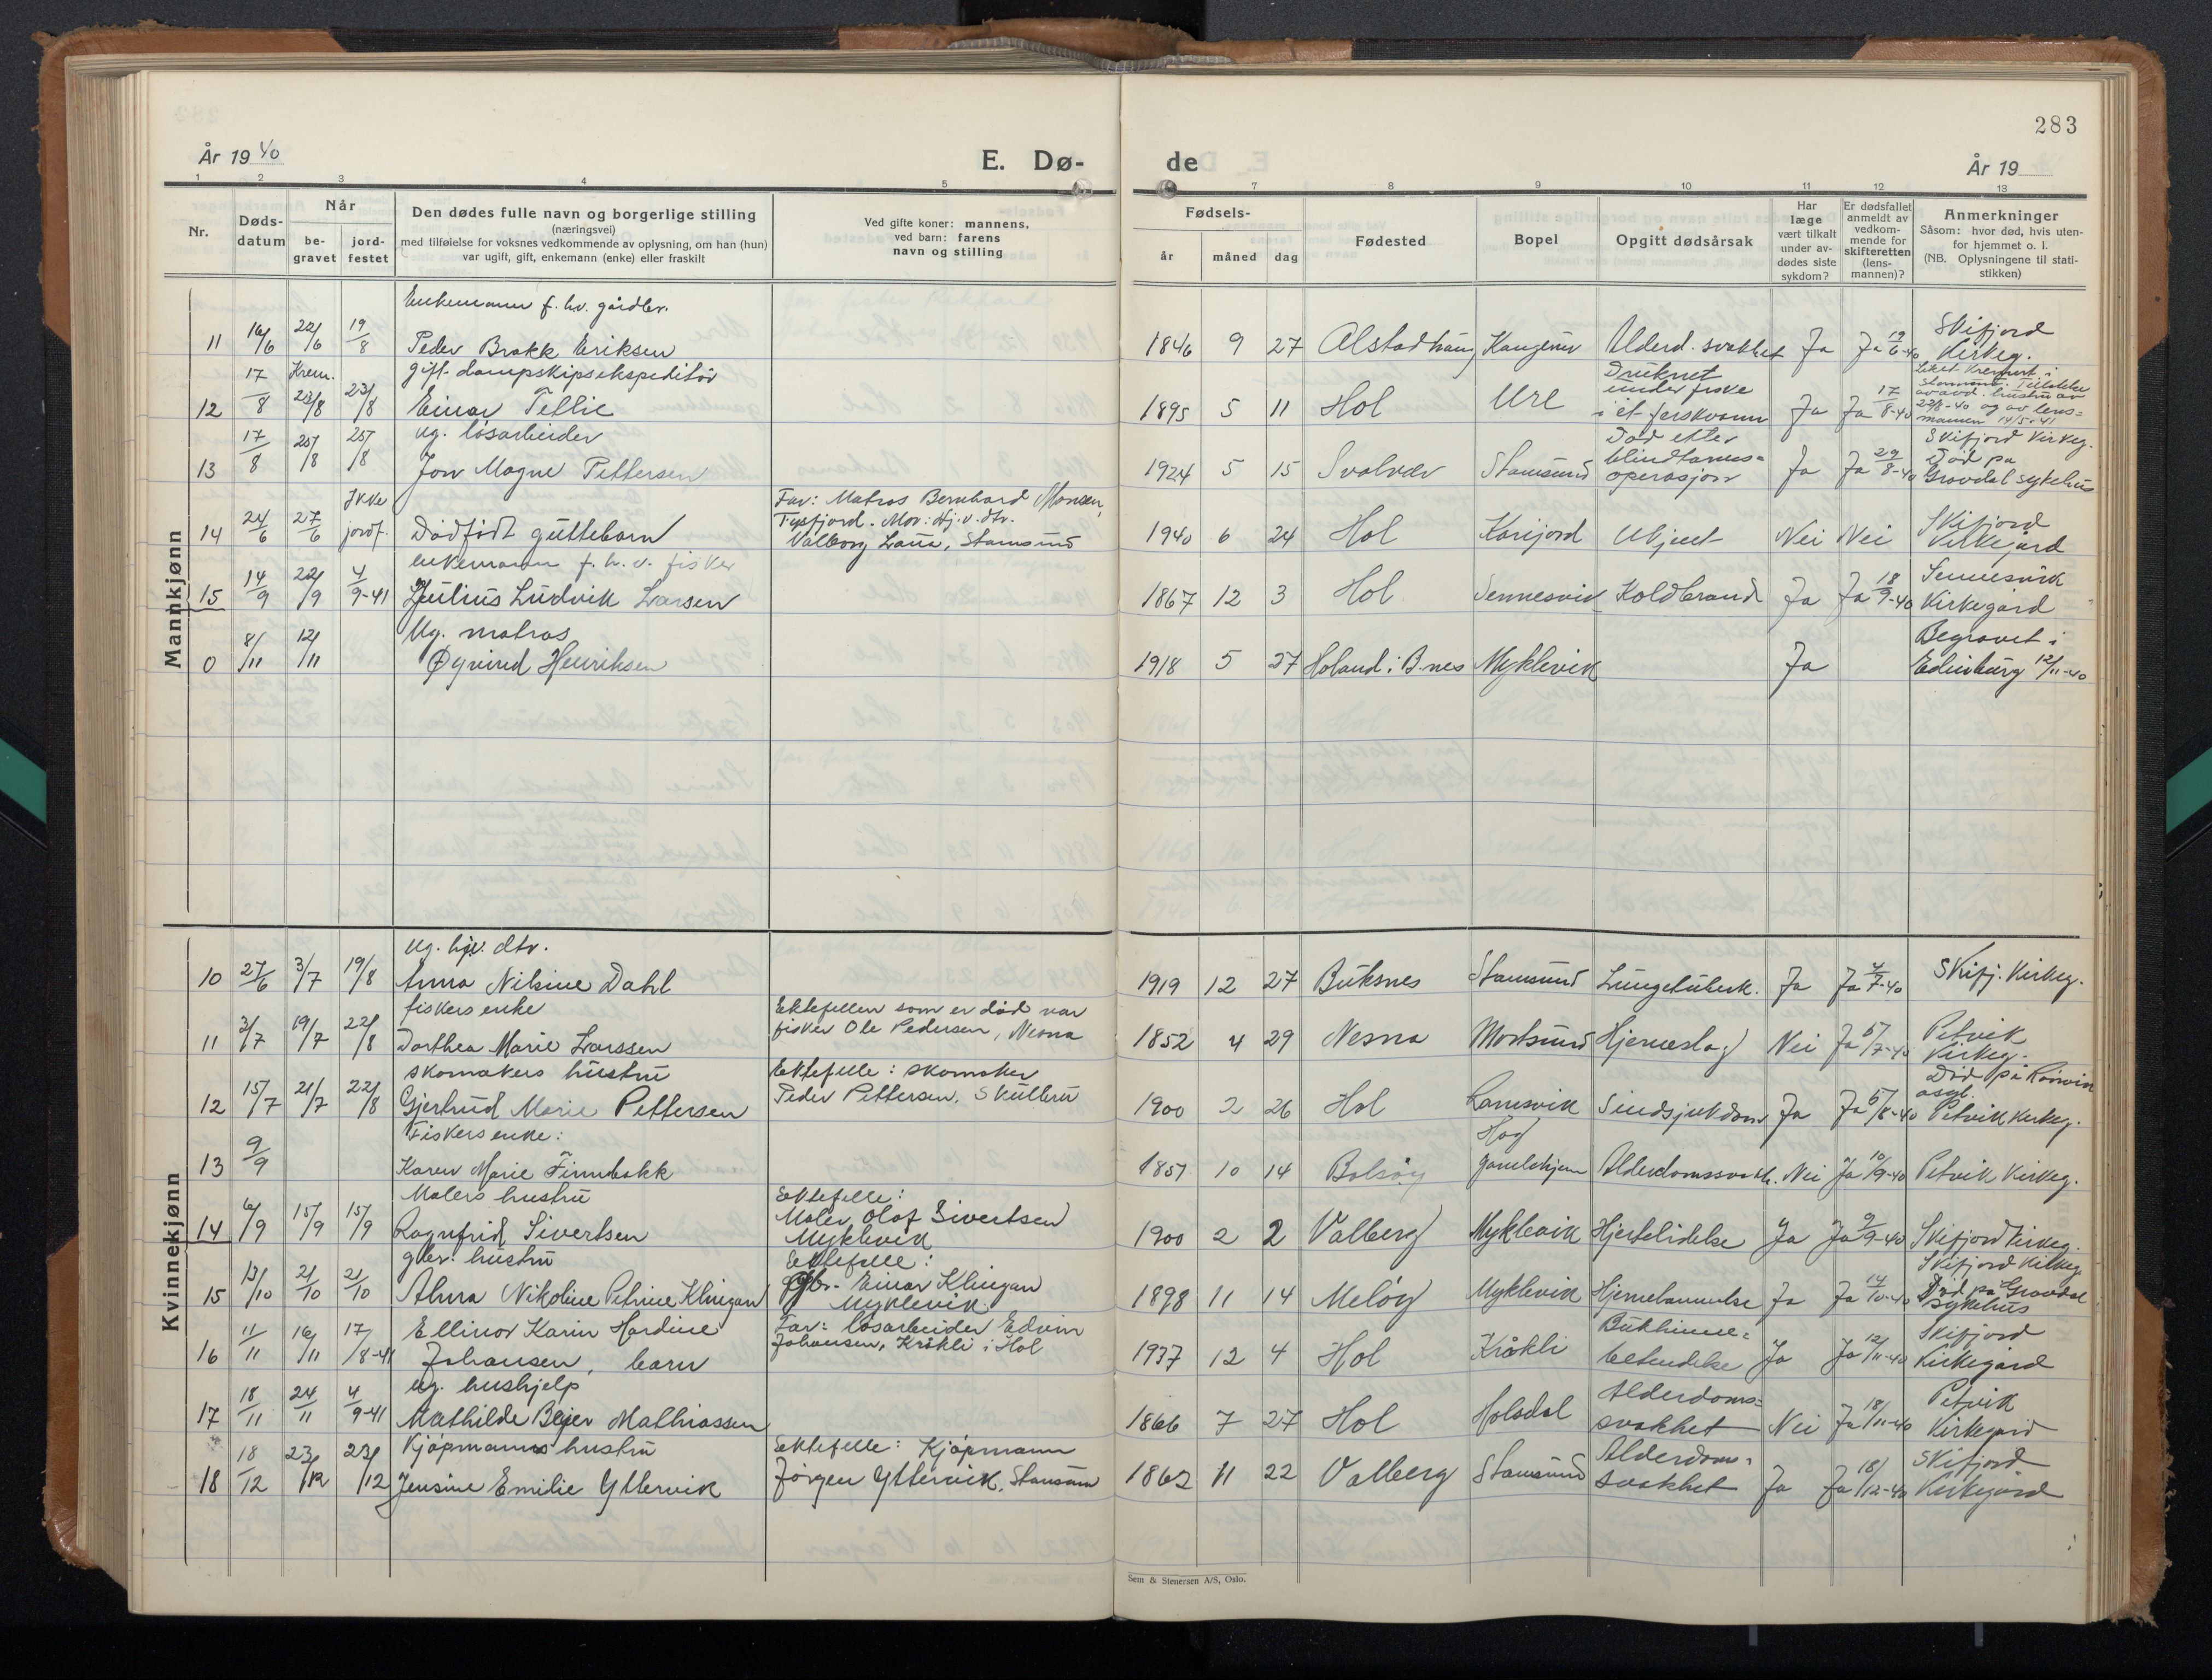 283
År 1940
E. Dø-
de
År 19
1 2 3 4 5 7 8 9 10 11 12 13
Nr.
Døds-
datum
Når
be-
gravet
jord-
festet
Den dødes fulle navn og borgerlige stilling
(næringsvei)
med tilføielse for voksnes vedkommende av oplysning, om han (hun)
var ugift, gift, enkemann (enke) eller fraskilt
Ved gifte koner: mannens,
ved barn: farens
navn og stilling
Fødsels-
år måned dag
Fødested
Bopel
Opgitt dødsårsak
Har
læge
vært tilkalt
under av-
dødes siste
sykdom?
Er dødsfallet
anmeldt av
vedkom-
mende for
skifteretten
(lens-
mannen)?
Anmerkninger
Såsom: hvor død, hvis uten-
for hjemmet o. l.
(NB. Oplysningene til stati-
stikken)
Mannkjønn
Enkemann f. hv. gårdbr.
11 16/6 22/6 19/8 Peder Brakk Eriksen 1846 9 27 Alstadhaug Alderd. svakhet Ja Ja 19/6-40 Skifjord
Kirkeg.
Krem. gift dampskipsekspeditør
12 17/8 23/8 23/8 Einar Tellie 1895 5 11 Hol Ure Druknet
under fiske
i et ferskvann Ja Ja 17/8-40 Liket kremert i
Tillatelse
av avd. hustru av
22/8-40 og av lens=
mannen 14/5-41
ug. løsarbeider
13 17/8 25/8 25/8 Jon Magne Pettersen 1924 5 15 Svolvær Stamsund Død etter
blindtarms=
operasjon Ja Ja 29/8-40 Skifjord Kirkeg.
Død på
Gravdal sykehus
14 24/6 27/6 Ikke
jordf. Dødfødt guttebarn Far: Matros Bernhard Monsen,
Tysfjord. Mor: Hj.v. dtr.
Valborg Stamsund 1940 6 24 Hol Ukjent Nei Nei Skifjord
Kirkegård
enkemann f. h. v. fisker
15 14/9 22/9 4/9-41 Julius Ludvik Larsen 1867 12 3 Hol Sennesvik Koldbrand Ja Ja 18/9-40 Sennesvik
Kirkegård
Ug. matros
0 8/11 12/11 Øyvind Henriksen 1918 5 27 Holand i B.nes Myklevik Ja Begravet i
Edinburg 12/11-40
Kvinnekjønn
ug. hjv. dtr.
10 27/6 3/7 19/8 Anna Nilsine Dahl 1919 12 27 Buksnes Stamsund Lungetuberk. Ja Ja 4/7-40 Skifj. Kirkeg.
fiskers enke
11 3/7 19/7 22/8 Dorthea Marie Larssen Ektefellen som er død var
fisker Ole Pedersen, Nesna 1852 4 29 Nesna Mortsund Hjerneslag Nei Ja 5/7-40 Petvik
Kirkeg.
skomakers hustru
12 15/7 21/7 22/8 Gjertrud Marie Pettersen Ektefelle: skomaker
Peder Pettersen, Skullbru 1900 2 26 Hol Ramsvik Sindsjukdom Ja Ja 5/8-40 Død på Rønvik
asyl.
Petvik kirkeg.
Fiskers enke:
13 9/9 Karen Marie Finnbakk 1857 10 14 Bolsøy Hag
gamlehjem Alderdomssvakh. Nei Ja 10/9-40 Petvik Kirkeg.
Malers hustru
14 6/9 15/9 15/9 Ragnfrid Sivertsen Ektefelle:
Maler Olaf Sivertsen
Myklevik 1900 2 2 Valberg Myklevik Hjertelidelse Ja Ja 9/9-40 Skifjord kirkeg.
gbr. hustru
15 13/10 21/10 21/10 Alma Nikoline Petrine Klingan Ektefelle:
Gbr. Einar Klingan
Myklevik. 1898 11 14 Meløy Myklevik Hjernebetennelse Ja Ja 14/10-40 Skifjord Kirkeg
Død på Gravdal
sykehus
16 11/11 16/11 17/8-41 Ellinor Karin Hardine
Johansen, barn Far: løsarbeider Edvin
Johansen, Kråkli i Hol 1937 12 4 Hol Kråkli Bukhinne=
betendelse Ja Ja 12/11-40 Skifjord
Kirkegård
ug. hushjelp
17 18/11 24/11 4/9-41 Mathilde Beyer Mathiassen 1866 7 27 Hol Holsdal Alderdoms=
svakhet Nei Ja 18/11-40 Petvik
Kirkegård
Kjøpmanns hustru
18 18/12 23/12 23/12 Jensine Emilie Yttervik Ektefelle: Kjøpmann
Jørgen Yttervik, Stamsund 1862 11 22 Valberg Stamsund Alderdoms=
svakhet Ja Ja 18/12-40 Skifjord
Kirkegård
Sem & Stenersen A/S, Oslo.